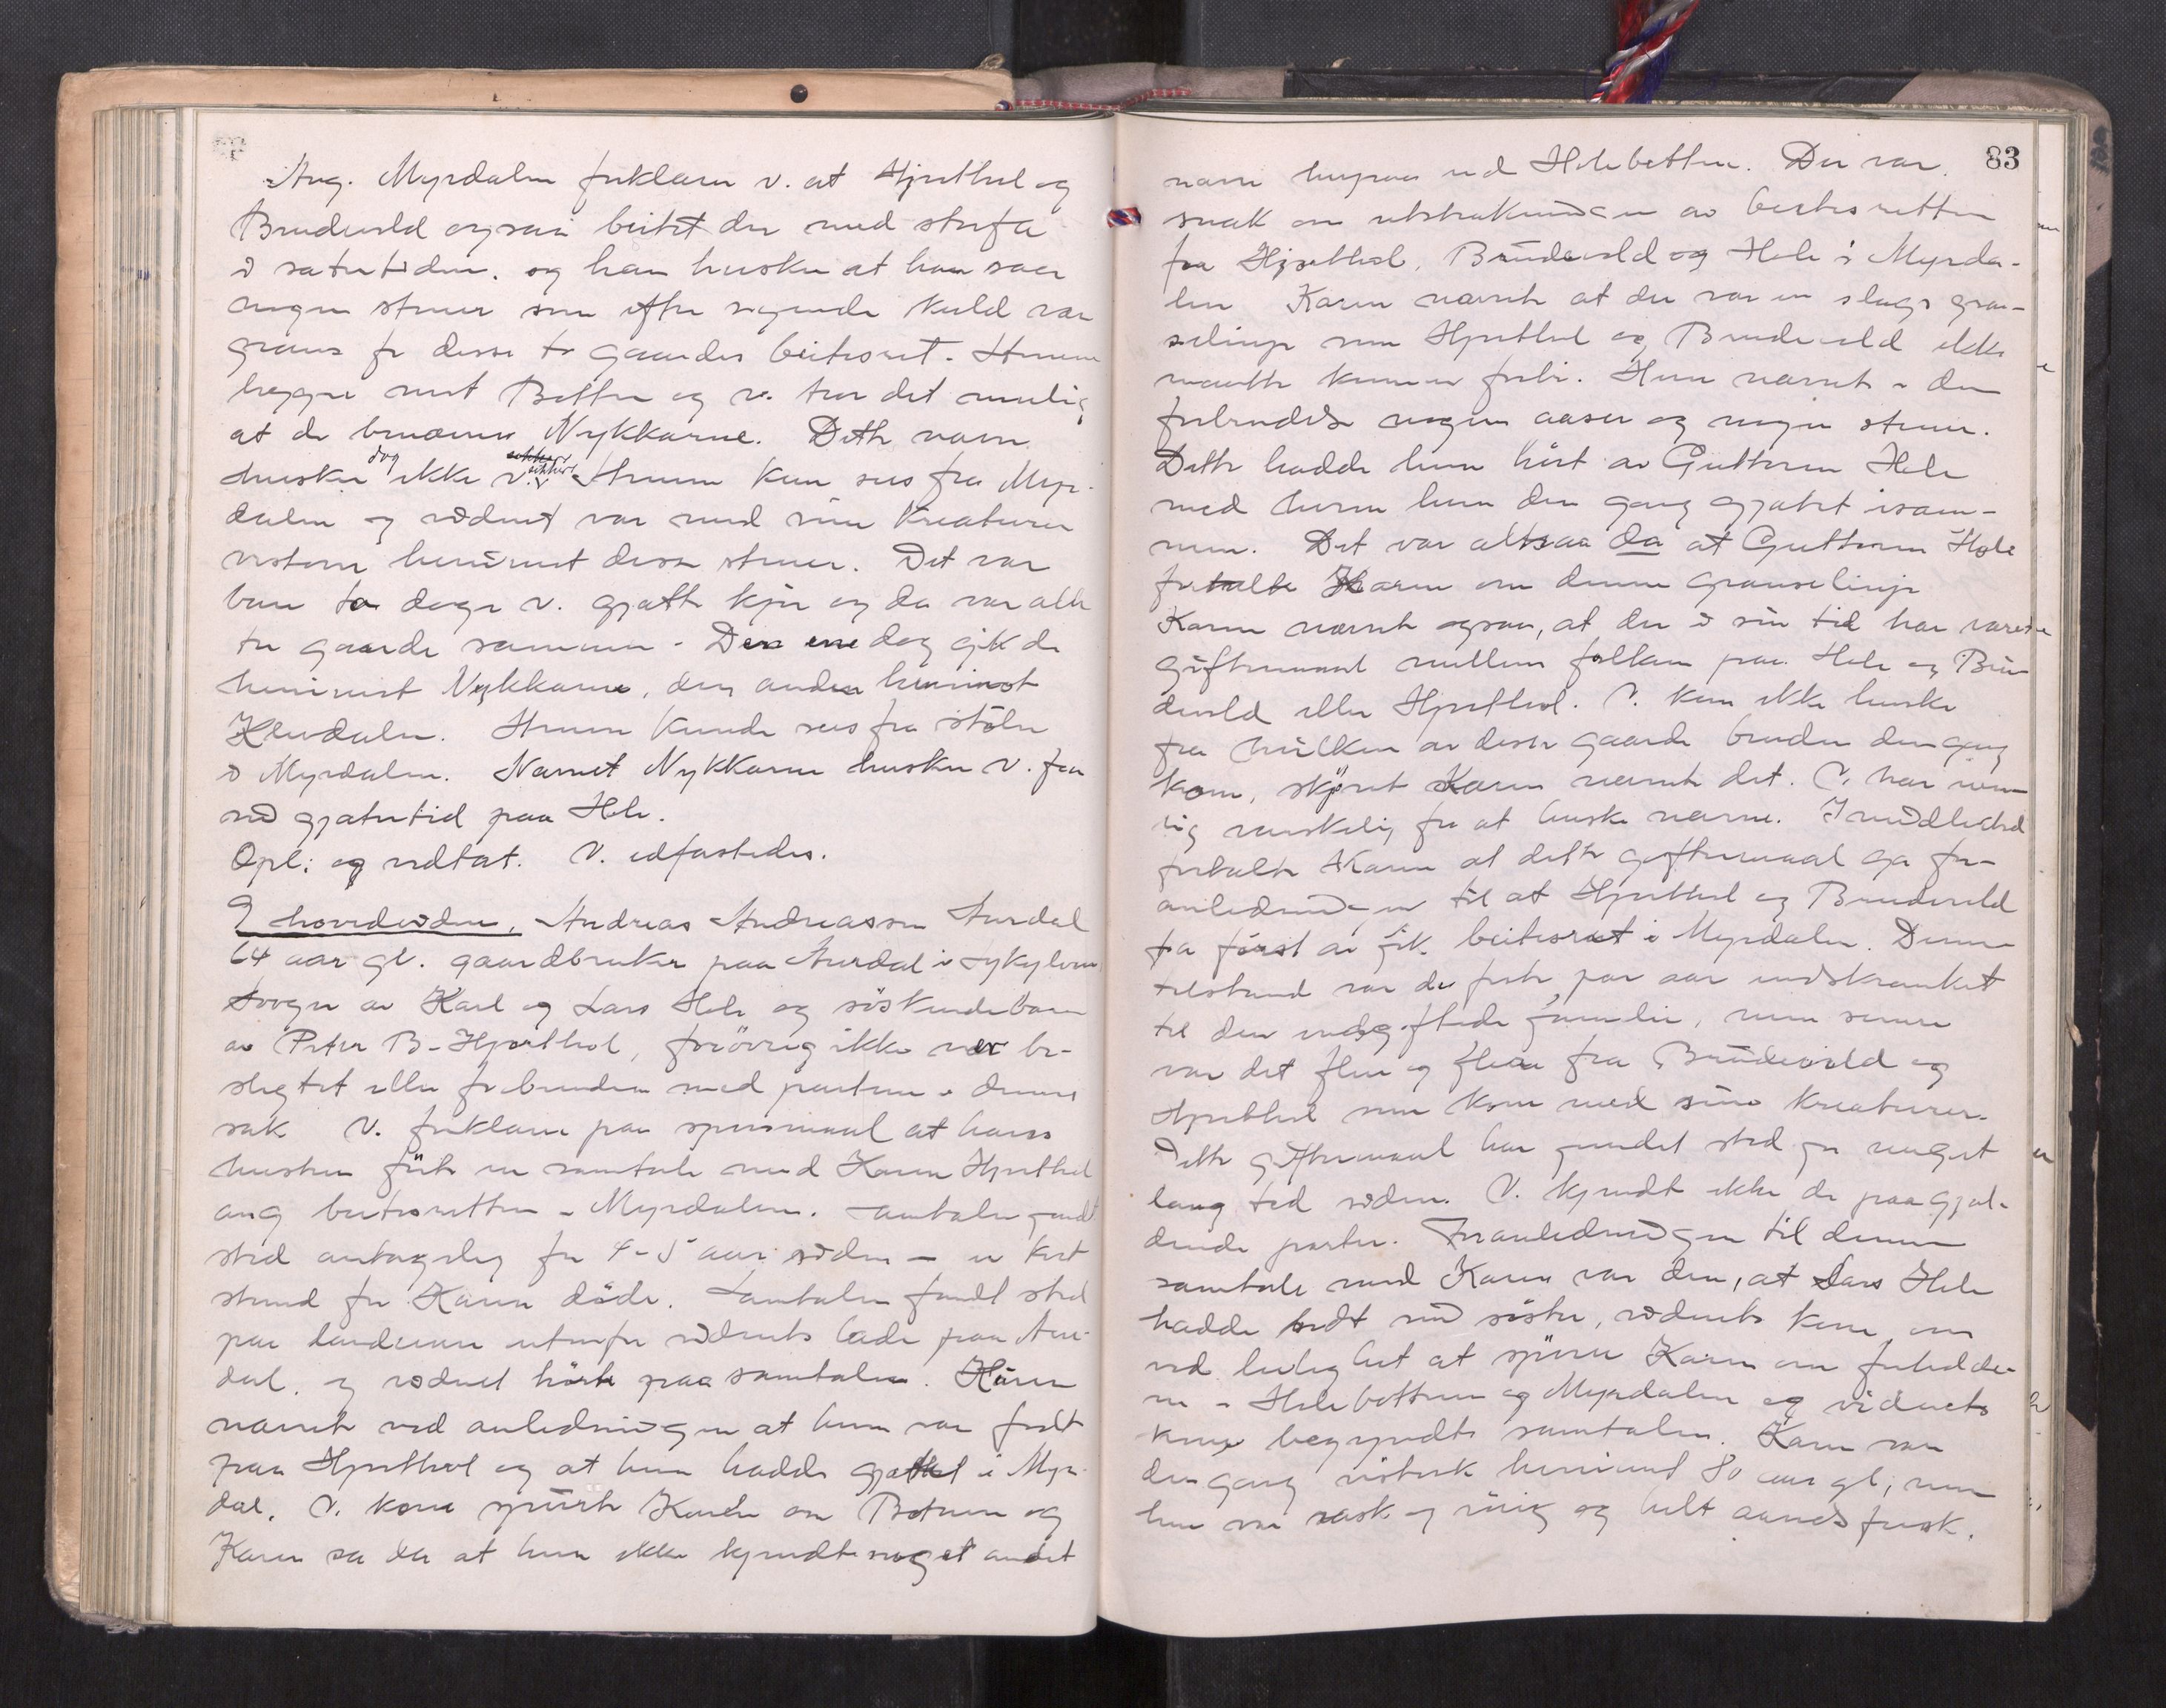 Ang. Myrdalen forklarer v. at Hjorthol og
Brudevold ogsaa beitet der med storfæ
i sætertiden, og han husker at han saa
nogen stener som efter sigende skuld være
grænse for disse to gaardes beitesret. Stenene
ligger mot Botten og v. tror det mulig
at de benævnes Nykkarne. Dette navn
husker dog ikke v. sikkert. Stenene kan sees fra Myr-
dalen og vidnet var med sine kreaturer
vestover henimot disse stener. Det var
bare to dage v. gjætte kjør og da var alle
tre gaarde sammen. Den ene dag gik de
henimot Nykkarne, den anden henimot
Klevdalen. Stenene kunde sees fra stølen
i Myrdalen. Navnet Nykkarne husker v. fra
sin gjætertid paa Hole.
Opl: og vedtat. V. edfæstedes.
9 hovedvidne, Andreas Andreassen Aurdal
64 aar gl. gaardbruker paa Aurdal i Sykylven
svoger av Karl og Lars Hole og søskendebarn
av Peter B. Hjorthol, forøvrig ikke nær be-
slegtet eller forbunden med partene i denne
sak. V. forklarer paa spørsmaal at hans
hustru førte en samtale med Karen Hjorthol
ang beitesretten i Myrdalen. Samtalen fandt
sted antagelig for 4-5 aar siden – en kort
stund før Karen døde. Samtalen fandt sted
paa landeveien utenfor vidnets lade paa Aur-
dal, og vidnet hørte paa samtalen. Karen
nævnte ved anledningen at hun var født
paa Hjorthol og at hun hadde gjætet i Myr-
dal. V. kone spurte Karen om Botnen og
Karen sa da at hun ikke kjendte noget andet
83
navn herpaa end Holebotten. Der var
snak om utstrækningen av beitesretten
fra Hjorthol, Brudevold og Hole i Myrda-
len. Karen nævnte at der var en slags græn-
selinje som Hjorthol og Brudevold ikke
maatte komme forbi. Hun nævnte i den
forbindelse nogen aaser og nogen stener.
Dette hadde hun hørt av Guttorm Hole
med hvem hun den gang gjætet isam-
men. Det var altsaa da at Guttorm Hole
fortalte Karen om denne grænselinje
Karen nævnte ogsaa, at der i sin tid har været
giftermaal mellem folkene paa Hole og Bru-
devold eller Hjorthol. V. kan ikke huske
fra hvilken av disse gaarde bruden dengang
kom, skjønt Karen nævnte det. V. har nem-
lig vanskelig for at huske navne. Imidlertid
fortalte Karen at dette giftermaal ga for-
anledningen til at Hjorthol og Brudevold
fra først av fik beitesret i Myrdalen. Denne
tilstand var de første par aar indskrænket
til den indgiftede familie, men senere
var det flere og flere fra Brudevold og
Hjorthol som kom med sine kreaturer.
Dette giftermaal har fundet sted for meget
lang tid siden. V. kjendte ikke de paagjæl-
dende parter. Foranledningen til denne
samtale med Karen var den, at Lars Hole
hadde bedt sin søster, vidnets kone, om
ved leilighet at spørre Karen om forholde-
ne i Holebotten og Myrdalen og vidnets
kone begyndte samtalen. Karen var
dengang visterk henimot 80 aar gl, men
hun var rask og rørig og helt aandsfrisk.